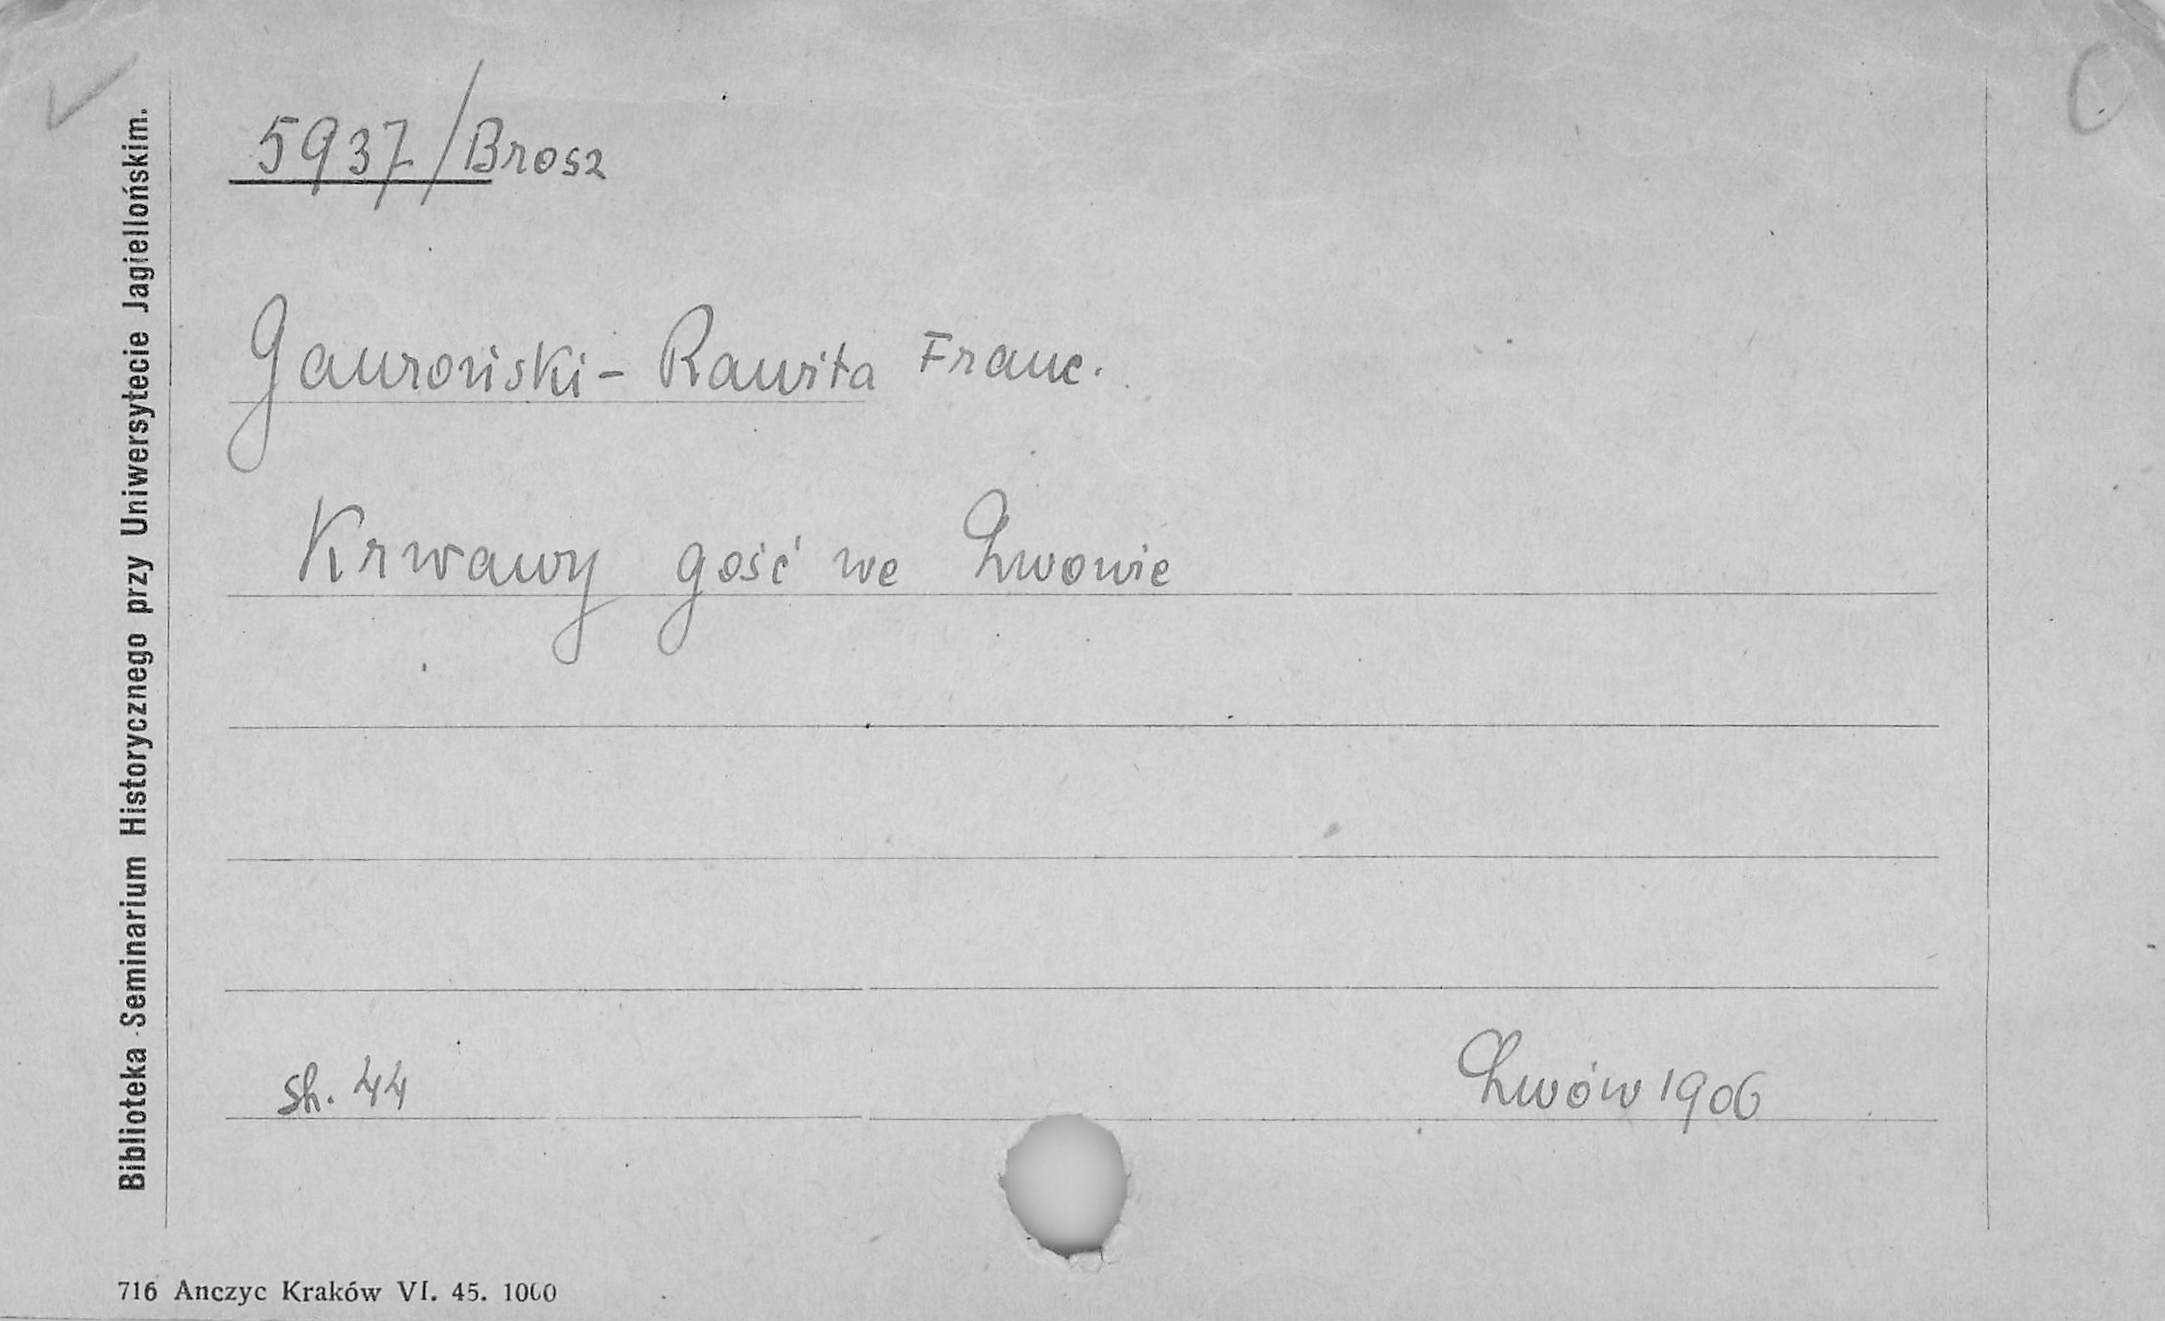 5937/Brosz
Gawroński-Rawita Franc.
Krwawy gość we Lwowie
str. 44
Lwów 1906
Biblioteka Seminarium Historycznego przy Uniwersytecie Jagiellońskim.
716 Anczyc Kraków VI. 45. 1000